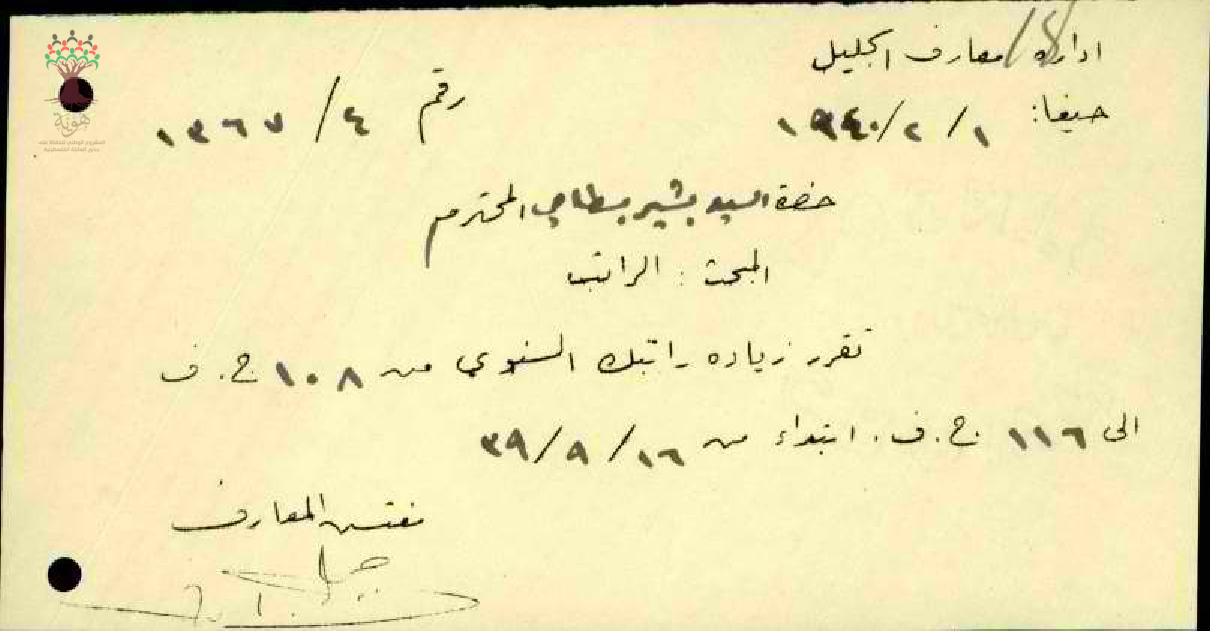 ادارة معارف الجليل
حيفا: ١/٢/١٩٤٠
رقم ٤/١٣٦٧
حضرة السيد بشير بسطامي المحترم
المبحث: الراتب
تقرر زيادة راتبك السنوي من ١٠٨ ج.ف
الى ١١٦ ج.ف. ابتداء من ١٦/٩/٣٩
مفتش المعارف
هوية